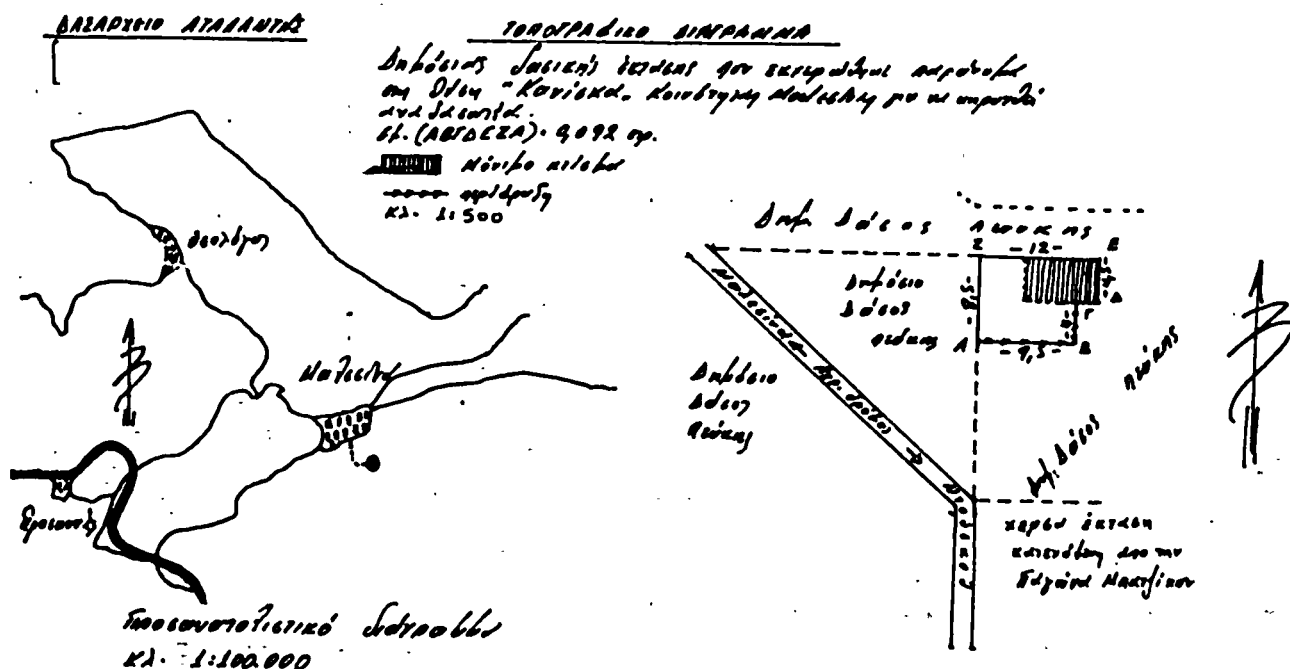 ΔΑΣΑΡΧΕΙΟ ΑΤΑΛΑΝΤΗΣ
ΤΟΠΟΓΡΑΦΙΚΟ ΔΙΑΓΡΑΜΜΑ
Δημόσιας δασικής έκτασης που εκχερώθηκε παράνομα
στη θέση "Κανίσκα" Κοινότητας Μαλεσίνης για να κηρυχθεί
αναδασωτέα.
Εμ. (ΑΒΓΔΕΖΑ). 0,092 στρ.
Μόνιμο κτίσμα
περίφραξη
Κλ. 1:500
Θεολόγος
Μαλεσίνα
Προσανατολιστικό διάγραμμα
Κλ. 1:100.000
Δημ. Δάσος Πεύκης
Ζ -12- Ε
Δημόσιο
Δάσος
Πεύκης
-9,5-
Δ
Γ
Α -9,5- Β
Δημόσιο
Δάσος
Πεύκης
Μαλεσίνα
Αγρ. δρόμος
Δημ. Δάσος πεύκης
χέρσα έκταση
από την